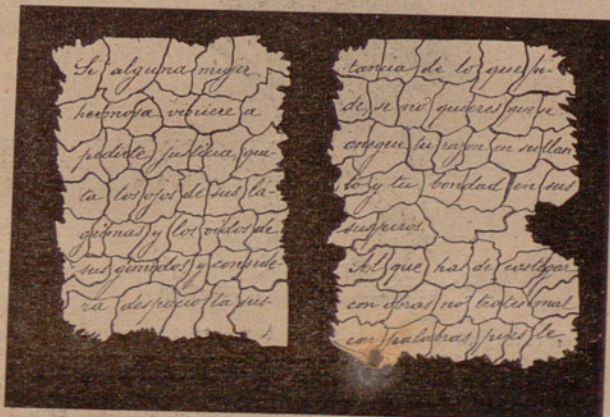 Si alguna mujer
hermosa viniere a
pedirte justicia, qui-
ta los ojos de sus lá-
grimas y los oidos de
sus gemidos y conside-
ra despacio la sus-
tancia de lo que pi-
de, si no quieres que se
anegue tu razon en su llan
to y tu bondad en sus
suspiros.
Al que has de castigar
con obras no trates mal
con palabras, pues le